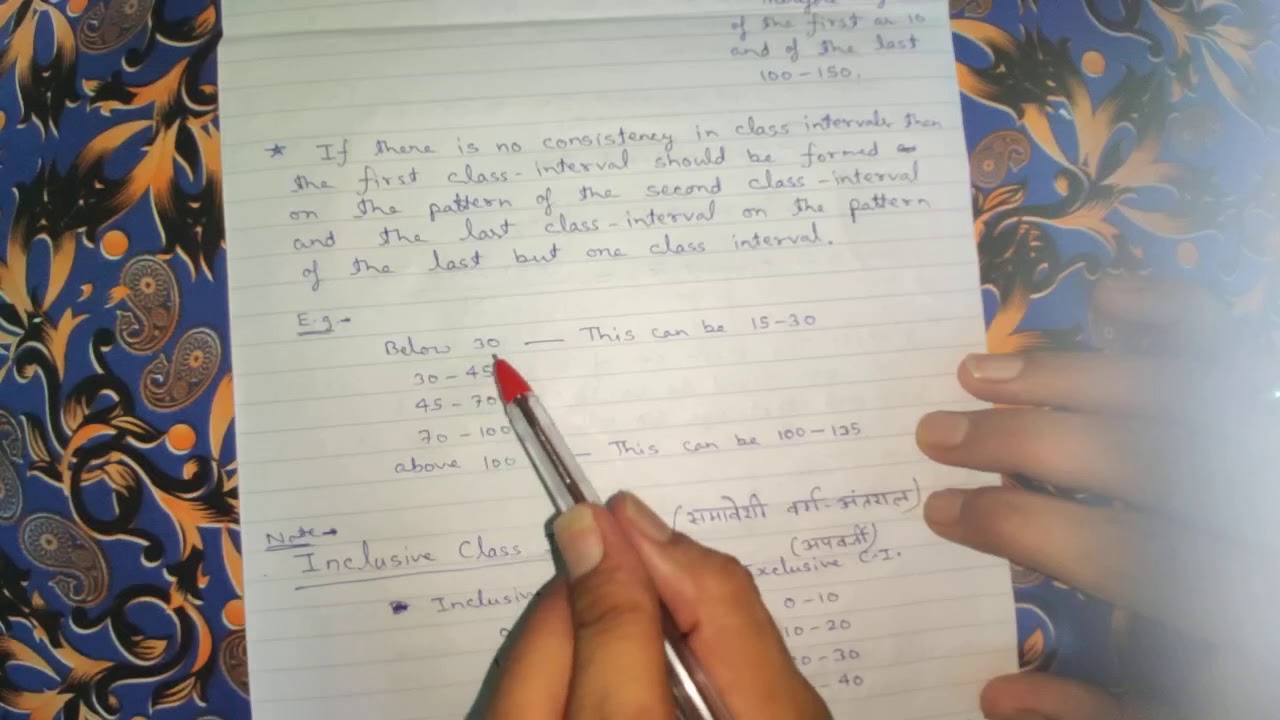 of the first as 10
and of the last
100-150.
* If there is no consistency in class intervals then
the first class-interval should be formed
on the pattern of the second class-interval
and the last class-interval on the pattern
of the last but one class interval.
E.g-
Below 30 — This can be 15-30
30-45
45-70
70-100
above 100 — This can be 100-135
(समावेशी वर्ग-अंतराल)
Note-
Inclusive Class
(अपवर्जी)
Inclusive Exclusive C.I.
0-10
10-20
-30
-40